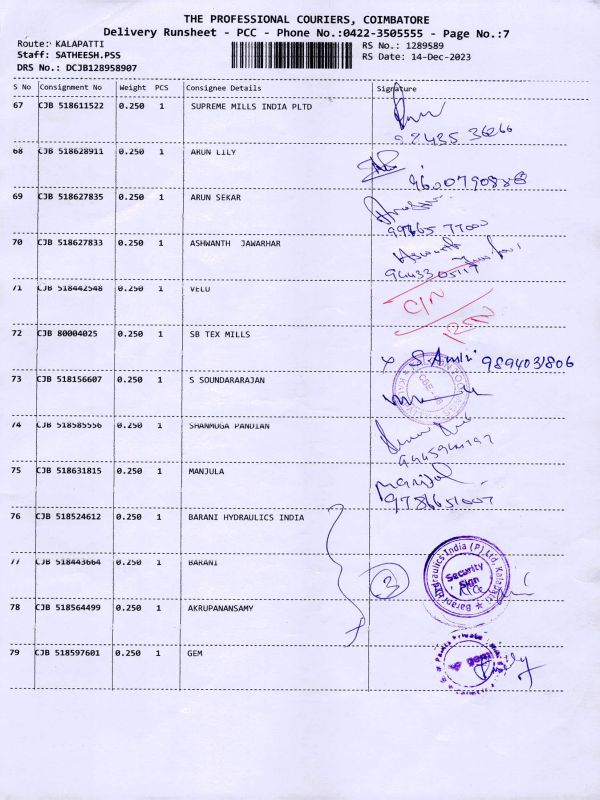 THE PROFESSIONAL COURIERS, COIMBATORE
Delivery Runsheet - PCC - Phone No.:0422-3505555 - Page No.:7
Route: KALAPATTI RS No.: 1289589
Staff: SATHEESH.PSS RS Date: 14-Dec-2023
DRS No.: DCJB128958907
S No Consignment No Weight PCS Consignee Details Signature
67 CJB 518611522 0.250 1 SUPREME MILLS INDIA PLTD
98435 36266
68 CJB 518628911 0.250 1 ARUN LILY
9600790888
69 CJB 518627835 0.250 1 ARUN SEKAR
99665 77000
70 CJB 518627833 0.250 1 ASHWANTH JAWARHAR
Aswanth
9443305117
71 CJB 518442548 0.250 1 VELU
C/N
72 CJB 80004025 0.250 1 SB TEX MILLS
9894031806
73 CJB 518156607 0.250 1 S SOUNDARARAJAN
74 CJB 518585556 0.250 1 SHANMUGA PANDIAN
75 CJB 518631815 0.250 1 MANJULA
9786651007
76 CJB 518524612 0.250 1 BARANI HYDRAULICS INDIA
77 CJB 518443664 0.250 1 BARANI
3
Barani Hydraulics India (P) Ltd, Kalapatti
Security
Sign
78 CJB 518564499 0.250 1 AKRUPANANSAMY
79 CJB 518597601 0.250 1 GEM
gem